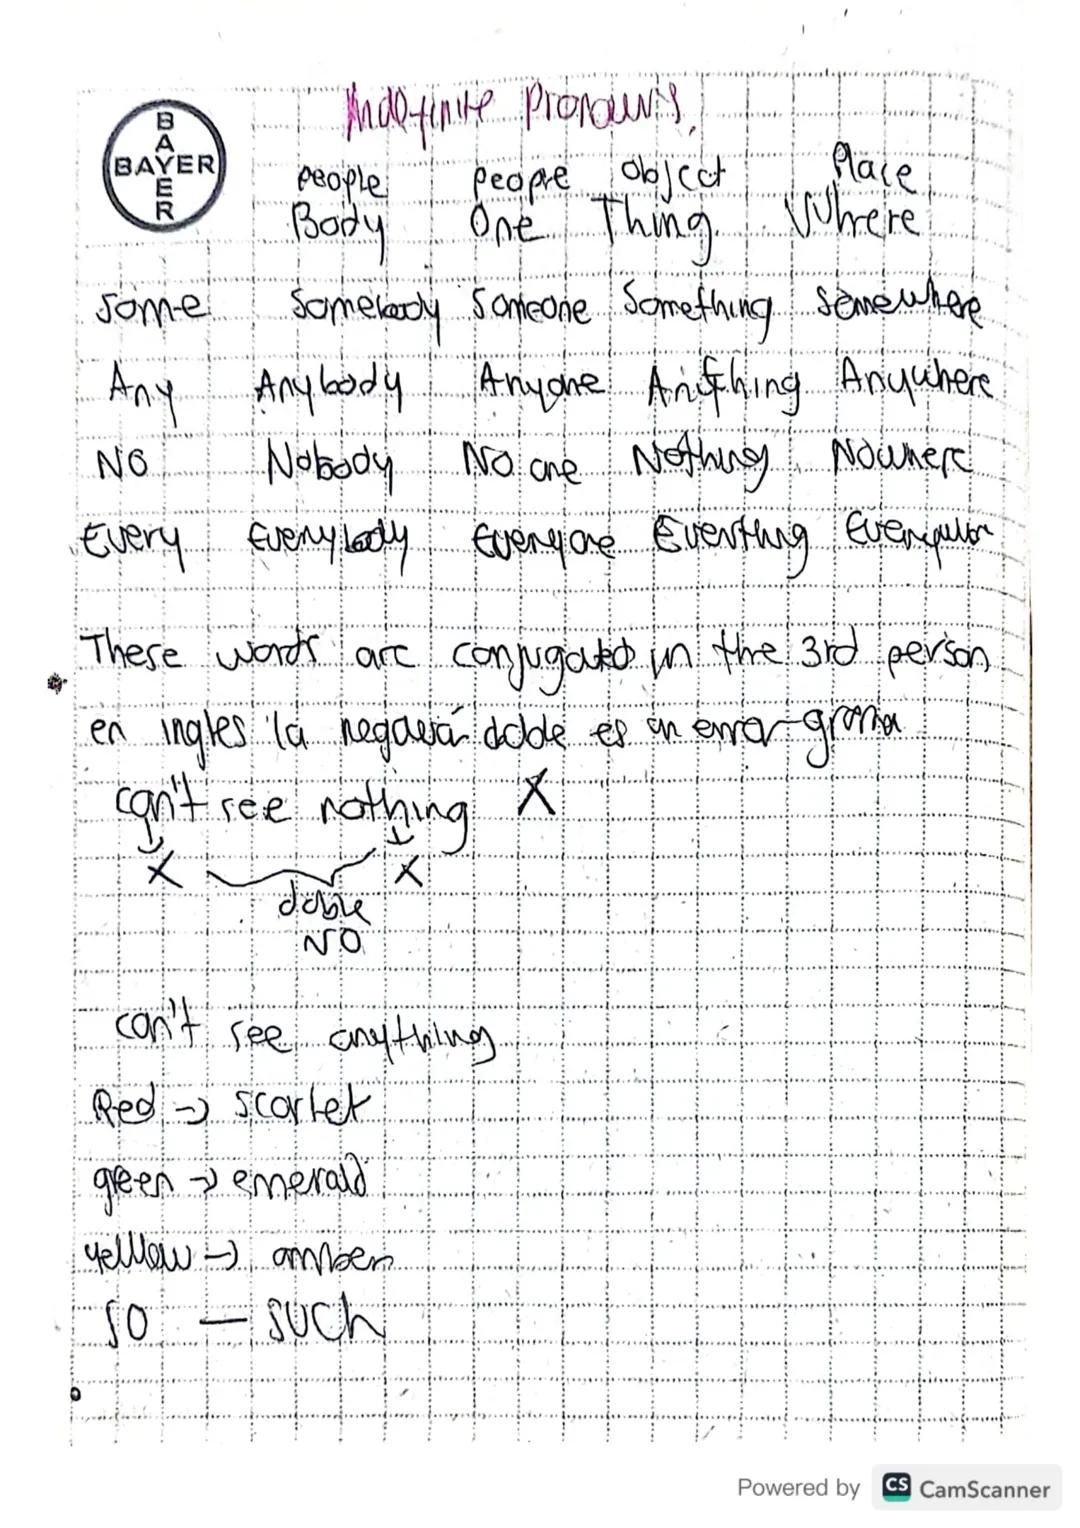 Indefinite Pronouns
B
A
BAYER
E
R
people people object Place
Body One Thing Where
Some Somebody Someone Something Somewhere
Any Anybody Anyone Anything Anywhere
NO Nobody No one Nothing Nowhere
Every Everybody Everyone Everthing
These words are conjugated in the 3rd person
en ingles la doble es un error
can't see nothing X
X X
doble
NO
can't see anything
Red → scarlet
green → emerald
yellow → amber
SO — SUCH
Powered by CS CamScanner